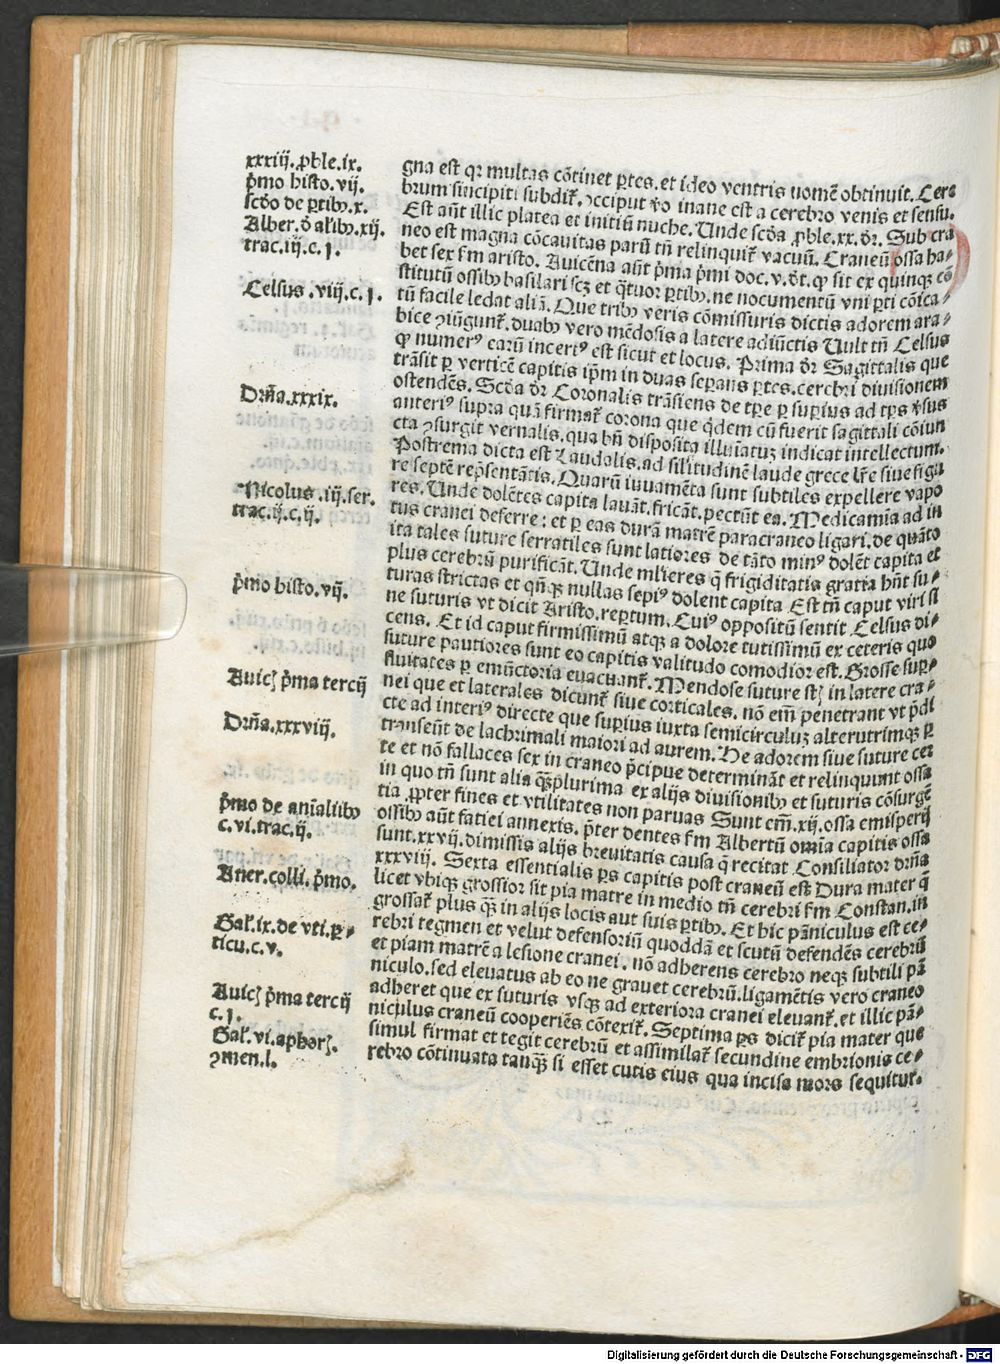 xxxiij. ꝓble.ix.
pͥmo histo. vij.
scďo de ꝑtibꝫ.x.
Alber. ď aĺibꝫ.xij.
trac.iij.c.1.
Celsus .viij.c.1.
Drña.xxxix.
Nicolus .iij.ser.
trac.ij.c.ij.
pͥmo histo.vij.
Auicꝫ pͥma tercij
Drña.xxxviij.
pͥmo de anīaliibꝫ
c.vi.trac.ij.
Auer.colli. pͥmo.
Gaĺ.ix.de vti.ꝑ⸗
ticu.c.v.
Auicꝫ pͥma tercij
c.1.
Gaĺ.vi.aphorꝫ.
ꝯmen.l.
gna est qꝛ multas cōtinet ꝑtes. et ideo ventris nomē obtinuit. Cere
brum sincipiti subdiť. ꝯcciput ꝟo inane est a cerebro venis et sensu.
Est aūt illic platea et initiū nuche. Unde scďa ꝓble.xx.ďr. Sub cra
neo est magna cōcauitas parū tñ relinquiť vacuū. Craneū ossa ha⸗
bet sex fm aristo. Auicēna aūt pͥma pͥmi doc.v.ďt. ꝙ sit ex quinqꝫ cō
stitutū ossibꝫ basilari scꝫ et qͣtuor ꝑtibꝫ. ne nocumentū vni ꝑti cōica⸗
tū facile ledat aliā. Que tribꝫ veris cōmissuris dictis adorem ara⸗
bice ꝯiūgunť. duabꝫ vero mēdosis a latere adiūctis Uult tñ Celsus
ꝙ numerꝰ earū incertꝰ est sicut et locus. Prima ďr Sagittalis que
trāsit ꝑ verticē capitis ip̄m in duas seꝑans ꝑtes. cerebri diuisionem
ostendēs. Scďa ďr Coronalis trāsiens de tꝑe ꝑ suꝑius ad tꝑs ꝟsus
anteriꝰ supra quā firmať corona que qͥdem cū fuerit sagittali cōiun
cta ꝯsurgit vernalis. qua bñ disposita illuīatuꝫ indicat intellectum.
Postrema dicta est Laudalis. ad silitudinē laude grece lr̄e siue figu
re septē rep̄sentātis. Quarū iuuamēta sunt subtiles expellere vapo
res. Unde dolētes capita lauāt. fricāt. pectūt ea. Medicamīa ad in
tus cranei deferre: et ꝑ eas durā matrē paracraneo ligari. de quāto
ita tales suture serratiles sunt latiores de tāto minꝰ dolēt capita et
plus cerebrū purificāt. Unde mĺieres q̄ frigiditatis gratia hñt su⸗
turas strictas et qñqꝫ nullas sepiꝰ dolent capita Est tñ caput viri si
ne suturis vt dicit Aristo. reꝑtum. Cuiꝰ oppositū sentit Celsus di⸗
cens. Et id caput firmissimū atqꝫ a dolore tutissimū ex ceteris quo
suture pautiores sunt eo capitis valitudo comodior est. Grosse suꝑ⸗
fluitates ꝑ emūctoria euacuanť. Mendose suture stꝫ in latere cra⸗
nei que et laterales dicunť siue corticales. nō em̄ penetrant vt p̄di
cte ad interiꝰ directe que suꝑius iuxta semicirculuꝫ alterutrimqꝫ ꝑ
transeūt de lachrimali maiori ad aurem. De adorem siue suture cer
te et nō fallaces sex in craneo p̄cipue determināt et relinquunt ossa
in quo tñ sunt alia qͣꝫplurima ex alijs diuisionibꝫ et suturis cōsurgē
tia ꝓpter fines et vtilitates non paruas Sunt cm̄.xij.ossa emisperij
ossibꝫ aūt fatiei annexis. p̄ter dentes fm Albertū omīa capitis ossa
sunt.xxvij.dimissis alijs breuitatis causa q̄ recitat Consiliator drña
xxxviij. Sexta essentialis ꝑs capitis post craneū est Dura mater q̄
licet vbiqꝫ grossior sit pia matre in medio tñ cerebri fm Constan. in
grossať plus qͣꝫ in alijs locis aut suis ꝑtibꝫ. Et hic pāniculus est ce⸗
rebri tegmen et velut defensoriū quoddā et scutū defendēs cerebrū
et piam matrē a lesione cranei. nō adherens cerebro neqꝫ subtili pā
niculo. sed eleuatus ab eo ne grauet cerebrū. ligamētis vero craneo
adheret que ex suturis vsqꝫ ad exteriora cranei eleuanť. et illic pā⸗
niculus craneū cooperiēs cōtexiť. Septima ꝑs diciť pia mater que
simul firmat et tegit cerebrū et assimilať secundine embrionis ce⸗
rebro cōtinuata tanqͣꝫ si esset cutis eius qua incisa mors sequitur.
Digitalisierung gefördert durch die Deutsche Forschungsgemeinschaft - DFG